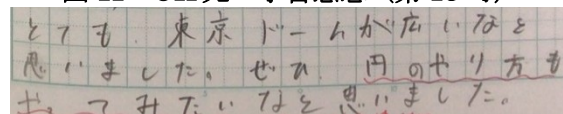 とても、東京ドームが広いなと
思いました。ぜひ、円のやり方も
やってみたいなと思いました。